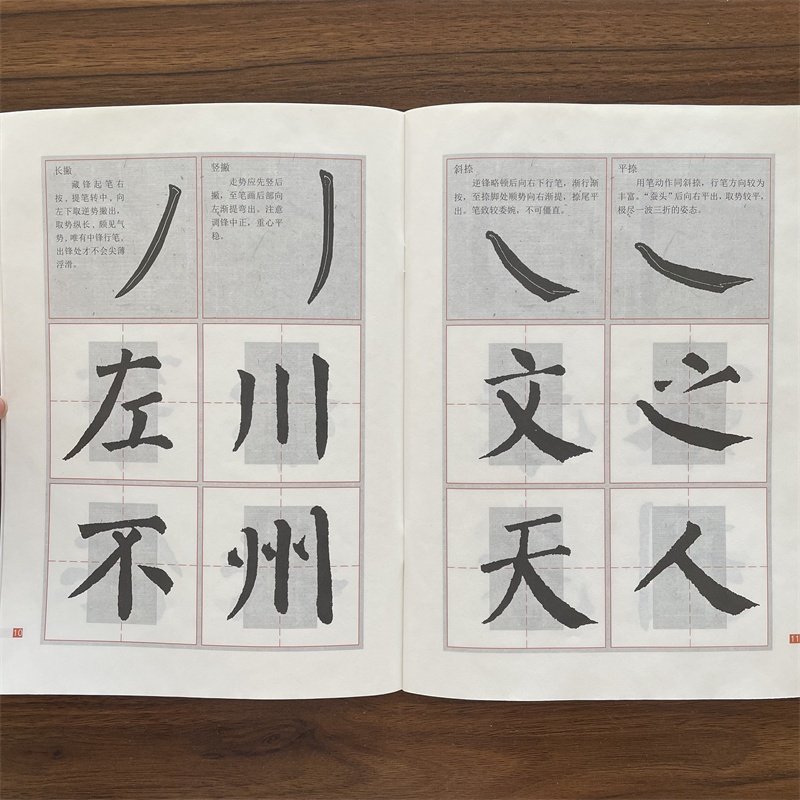 长撇
藏锋起笔右
按,提笔转中,向
左下取逆势撇出,
取势纵长,颇见气
势,唯有中锋行笔,
出锋处才不会尖薄
浮滑。
竖撇
走势应先竖后
撇,至笔画后部向
左渐提弯出。注意
调锋中正,重心平
稳。
左 川
不 州
10
斜捺
逆锋略顿后向右下行笔,渐行渐
按,至捺脚处顺势向右渐提,捺尾平
出。笔致较委婉,不可僵直。
平捺
用笔动作同斜捺,行笔方向较为
丰富。“蚕头”后向右平出,取势较平,
极尽一波三折的姿态。
文 之
天 人
11